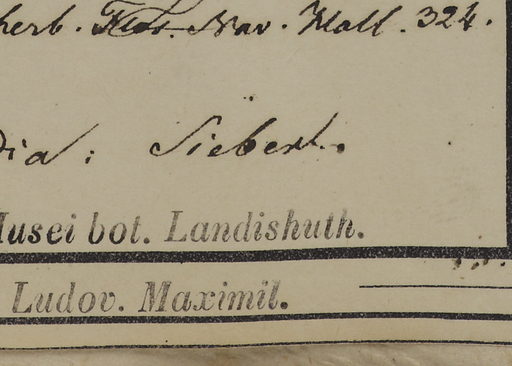 herb. Flor. Nov. Holl. 324.
dia: Sieber.
Musei bot. Landishuth.
Ludov. Maximil.